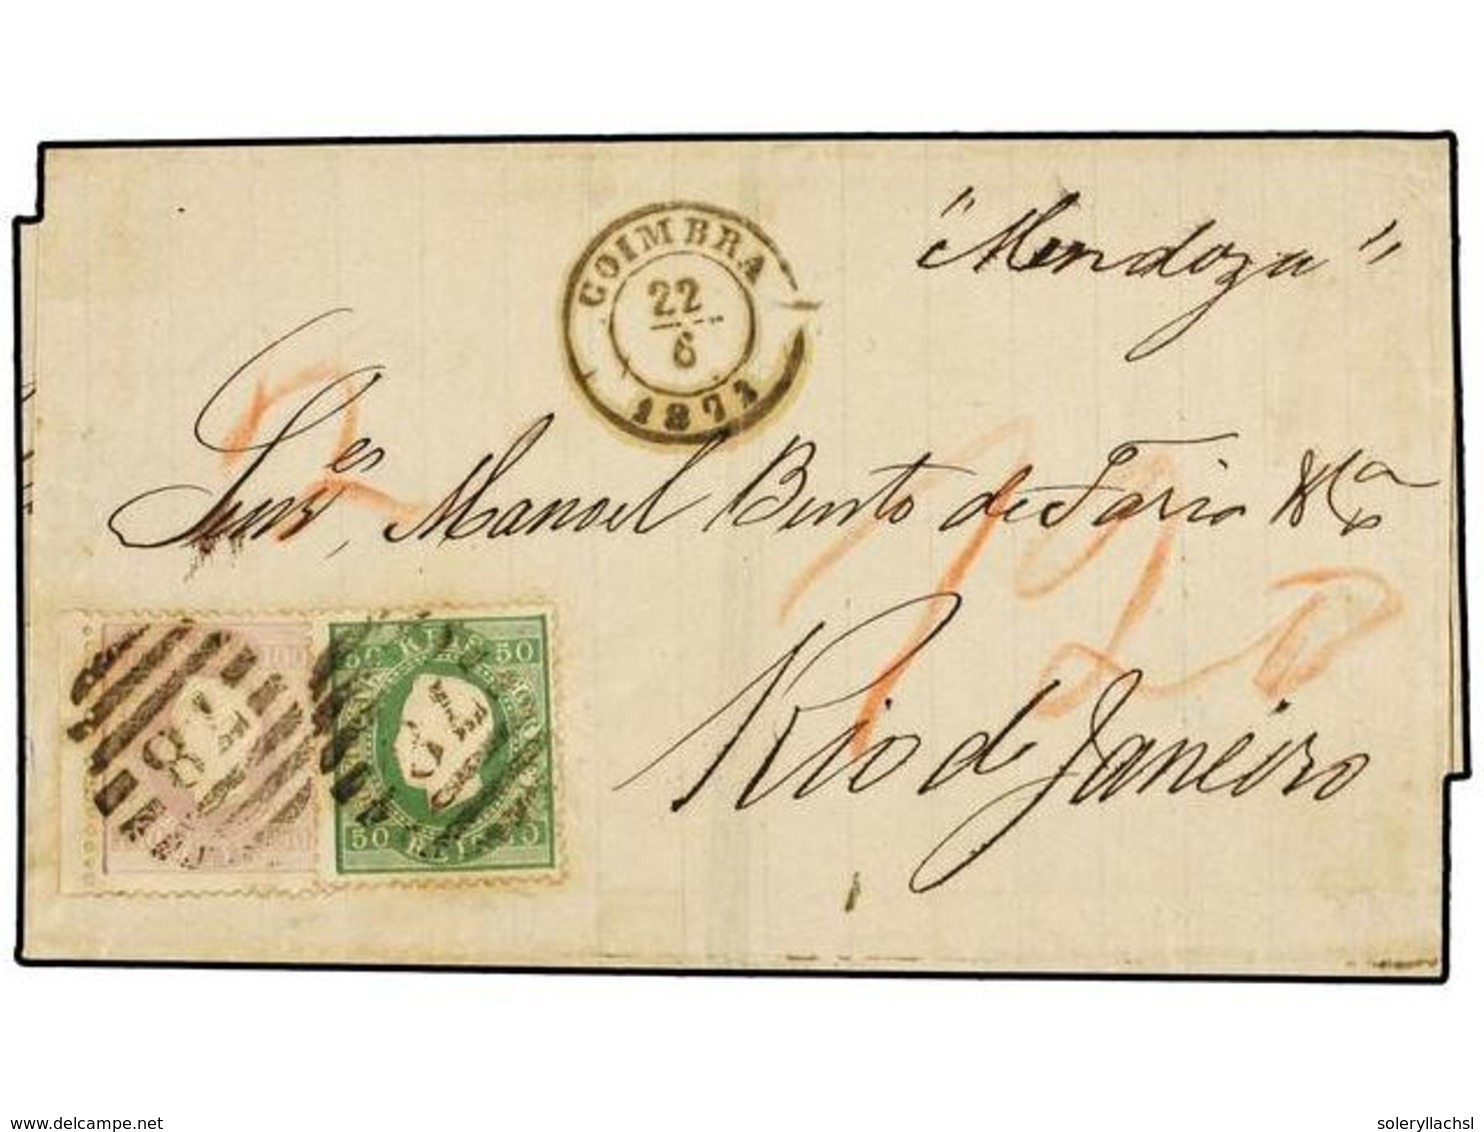 "Mendoza"
COIMBRA
22
6
1871
2
Senrs, Manoel Bento de Faria & Ca
Rio de Janeiro
50 REIS 50
50 REIS 50
delcampe.net
soleryllachsl